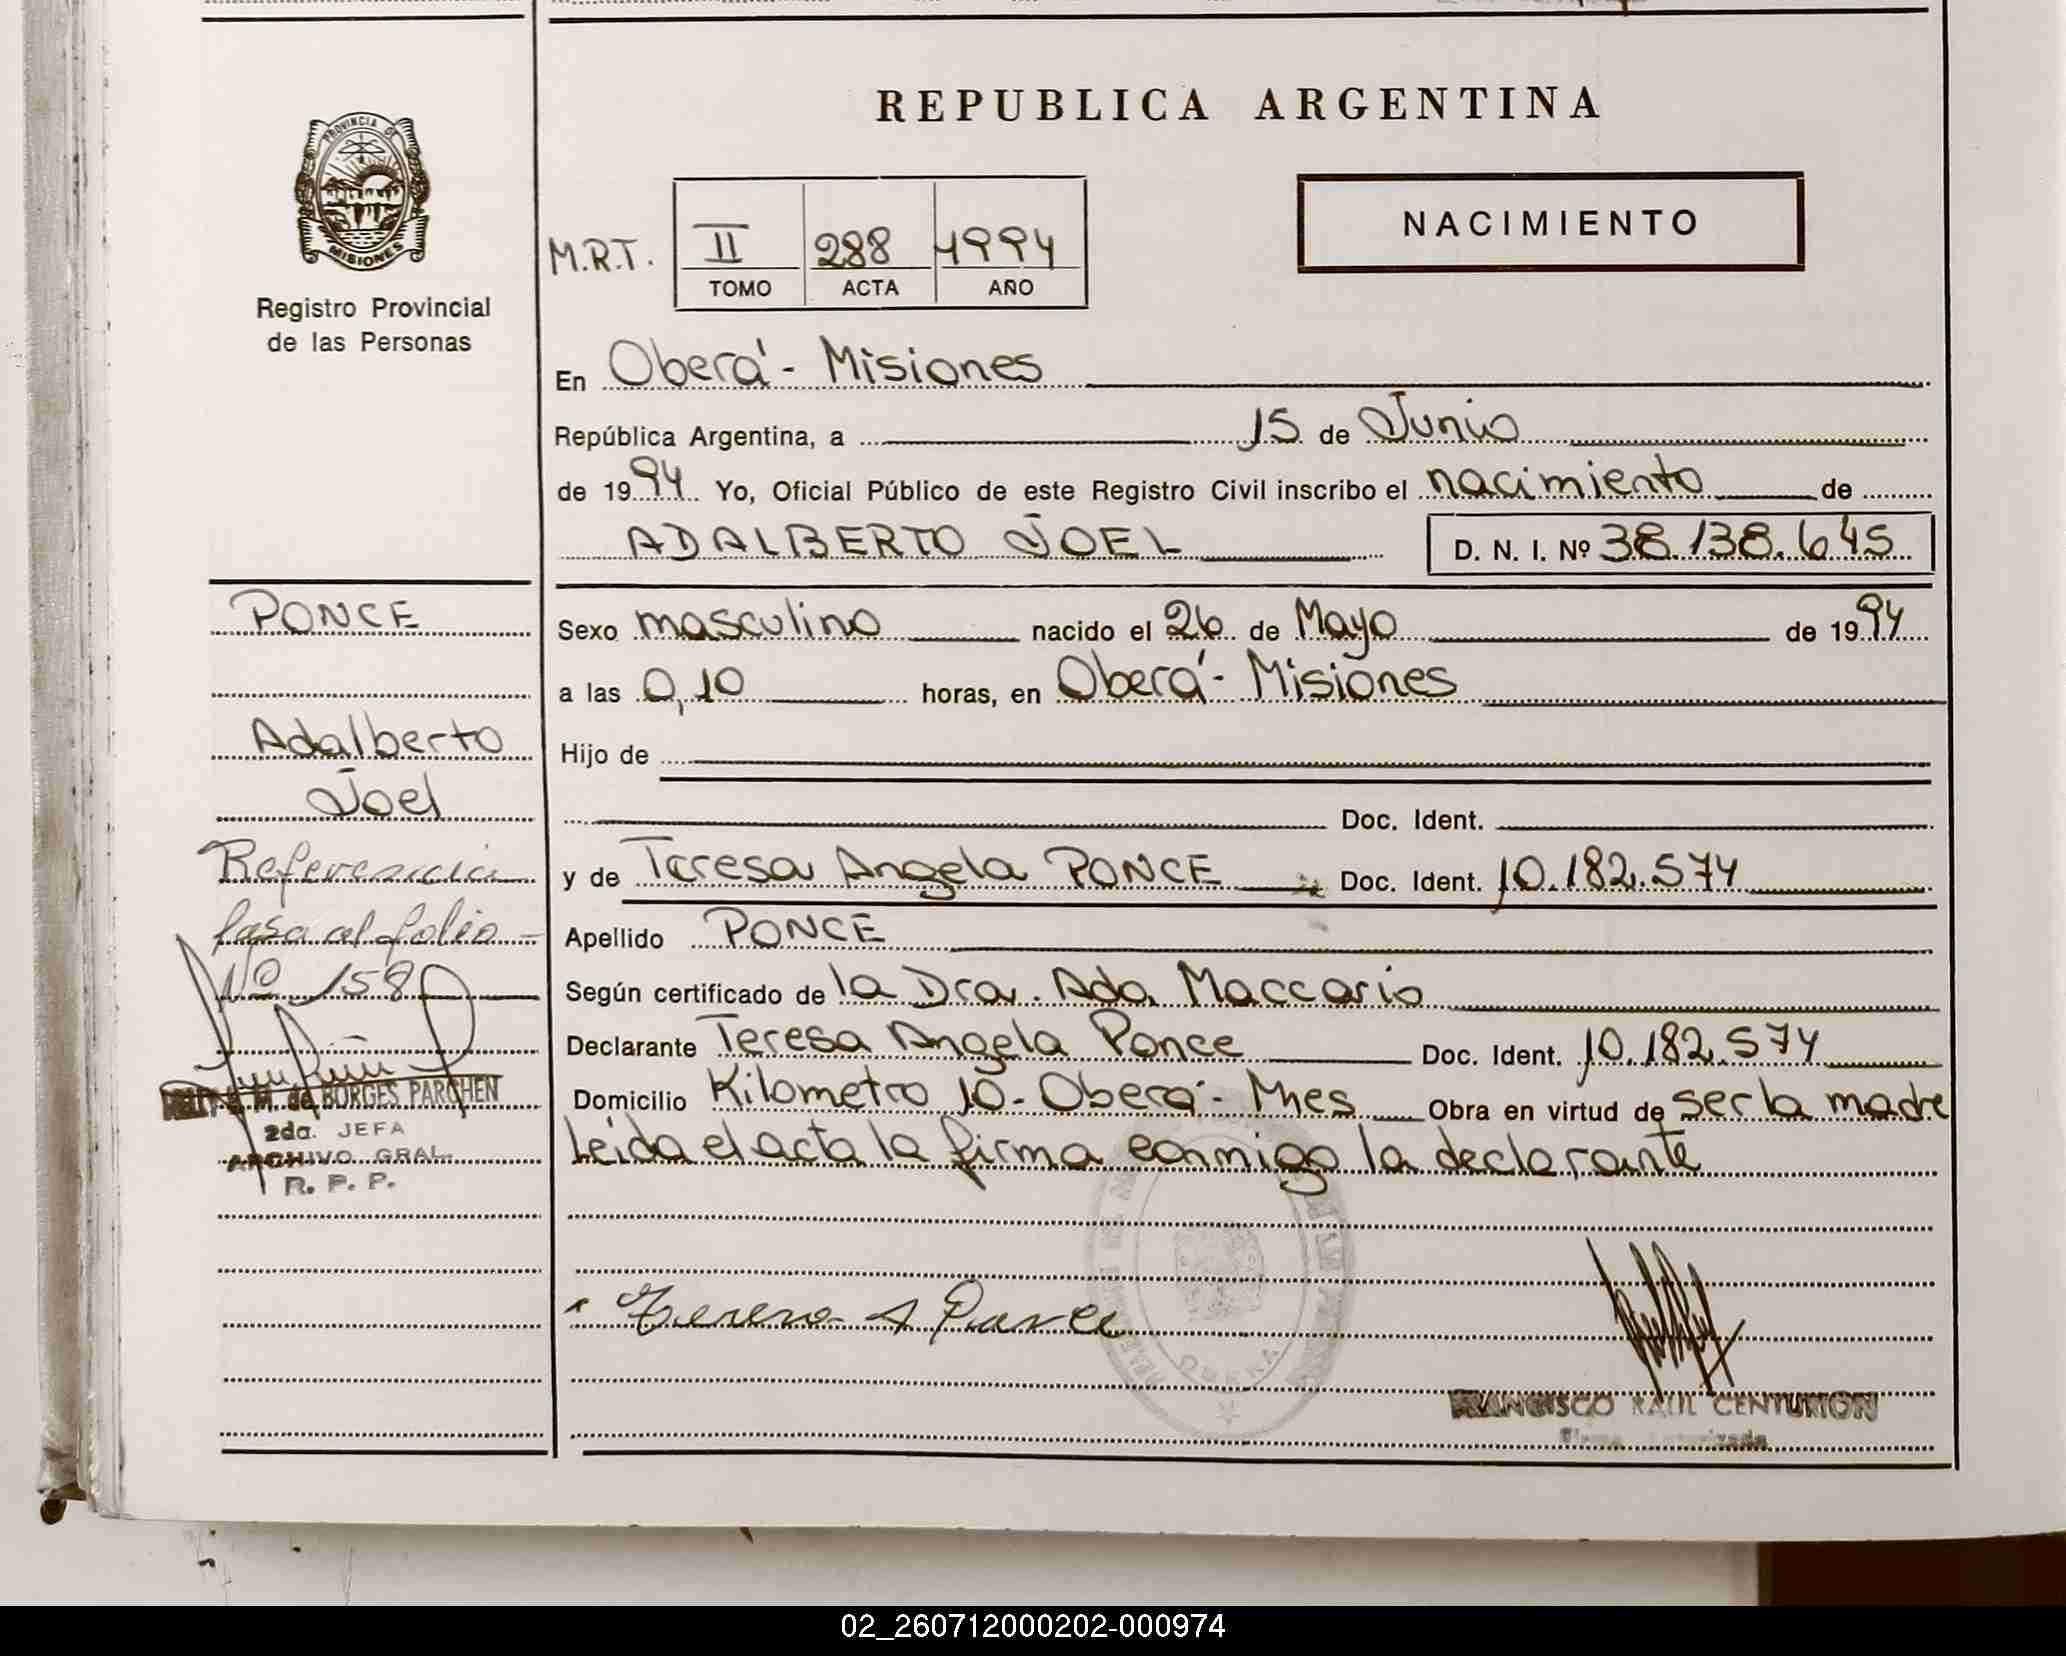 REPUBLICA ARGENTINA
PROVINCIA DE
MISIONES
Registro Provincial
de las Personas
NACIMIENTO
M.R.T. II 288 1994
TOMO ACTA AÑO
En Oberá - Misiones
República Argentina, a 15 de Junio
de 1994 Yo, Oficial Público de este Registro Civil inscribo el nacimiento de
ADALBERTO JOEL D. N. I. Nº 38.138.645
PONCE
Adalberto
Joel
Referencia
Pasa al folio
Nº 158
M. de BORGES PARCHEN
2da. JEFA
ARCHIVO GRAL.
R. P. P.
Sexo masculino nacido el 26 de Mayo de 1994
a las 0,10 horas, en Oberá - Misiones
Hijo de
Doc. Ident.
y de Teresa Angela PONCE Doc. Ident. 10.182.574
Apellido PONCE
Según certificado de la Dra. Ada Maccario
Declarante Teresa Angela Ponce Doc. Ident. 10.182.574
Domicilio Kilometro 10 - Oberá - Mnes Obra en virtud de ser la madre
Leida el acta la firma conmigo la declarante
Teresa A Ponce
OBERA
FRANCISCO RAUL CENTURION
Firma Autorizada
02_260712000202-000974